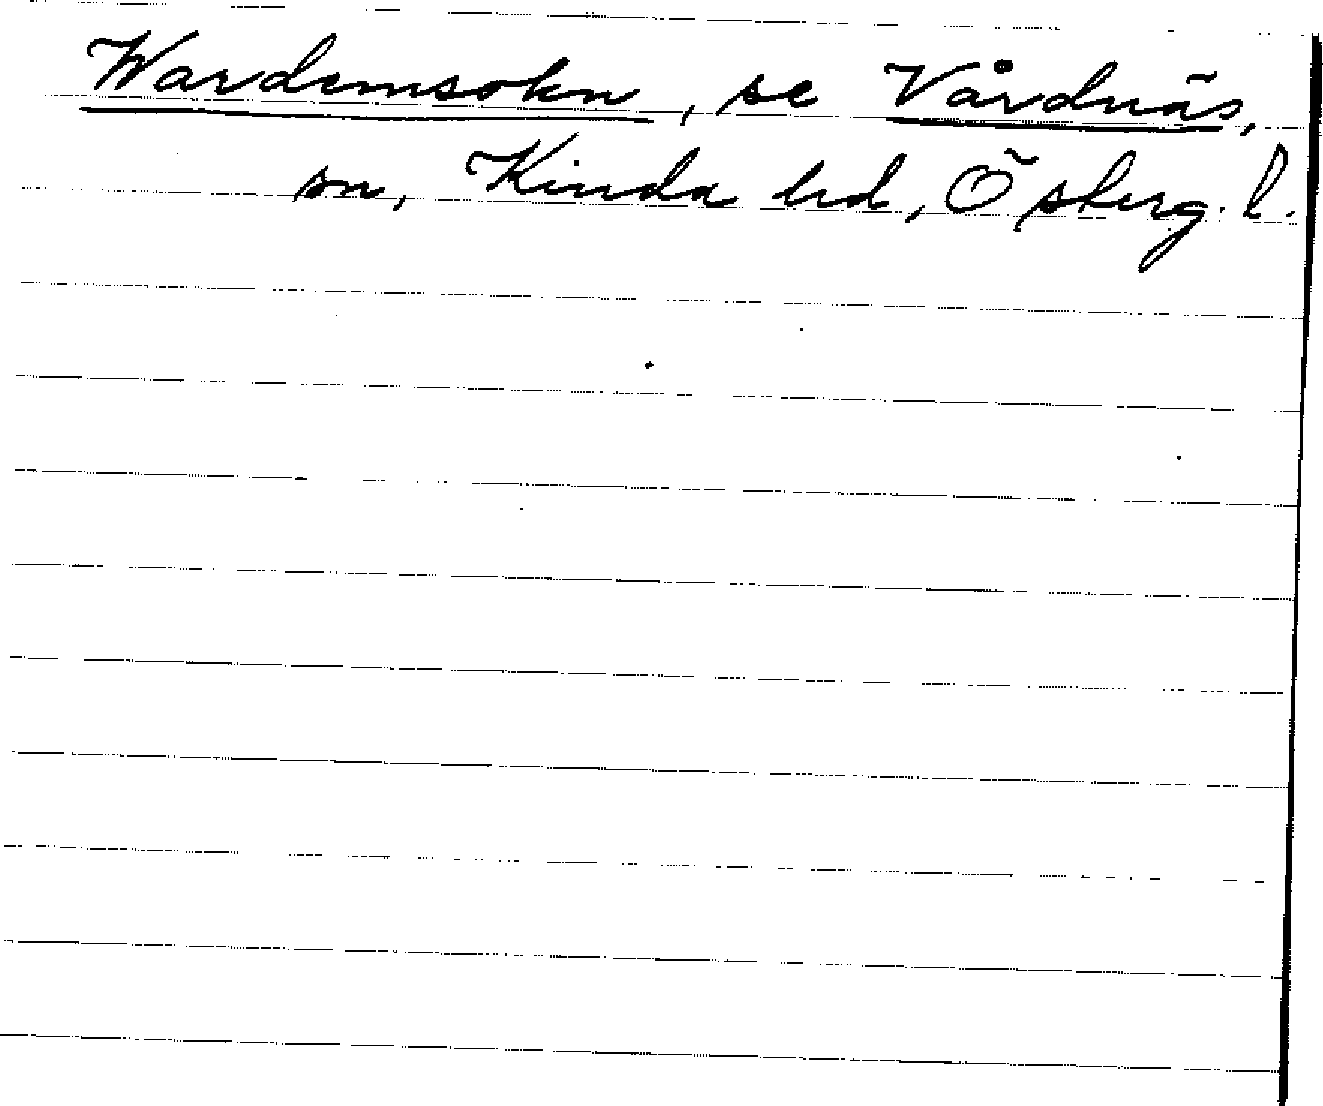 Wardemsokn, se Vårdnäs,
sn, Kinda hd, Österg. l.